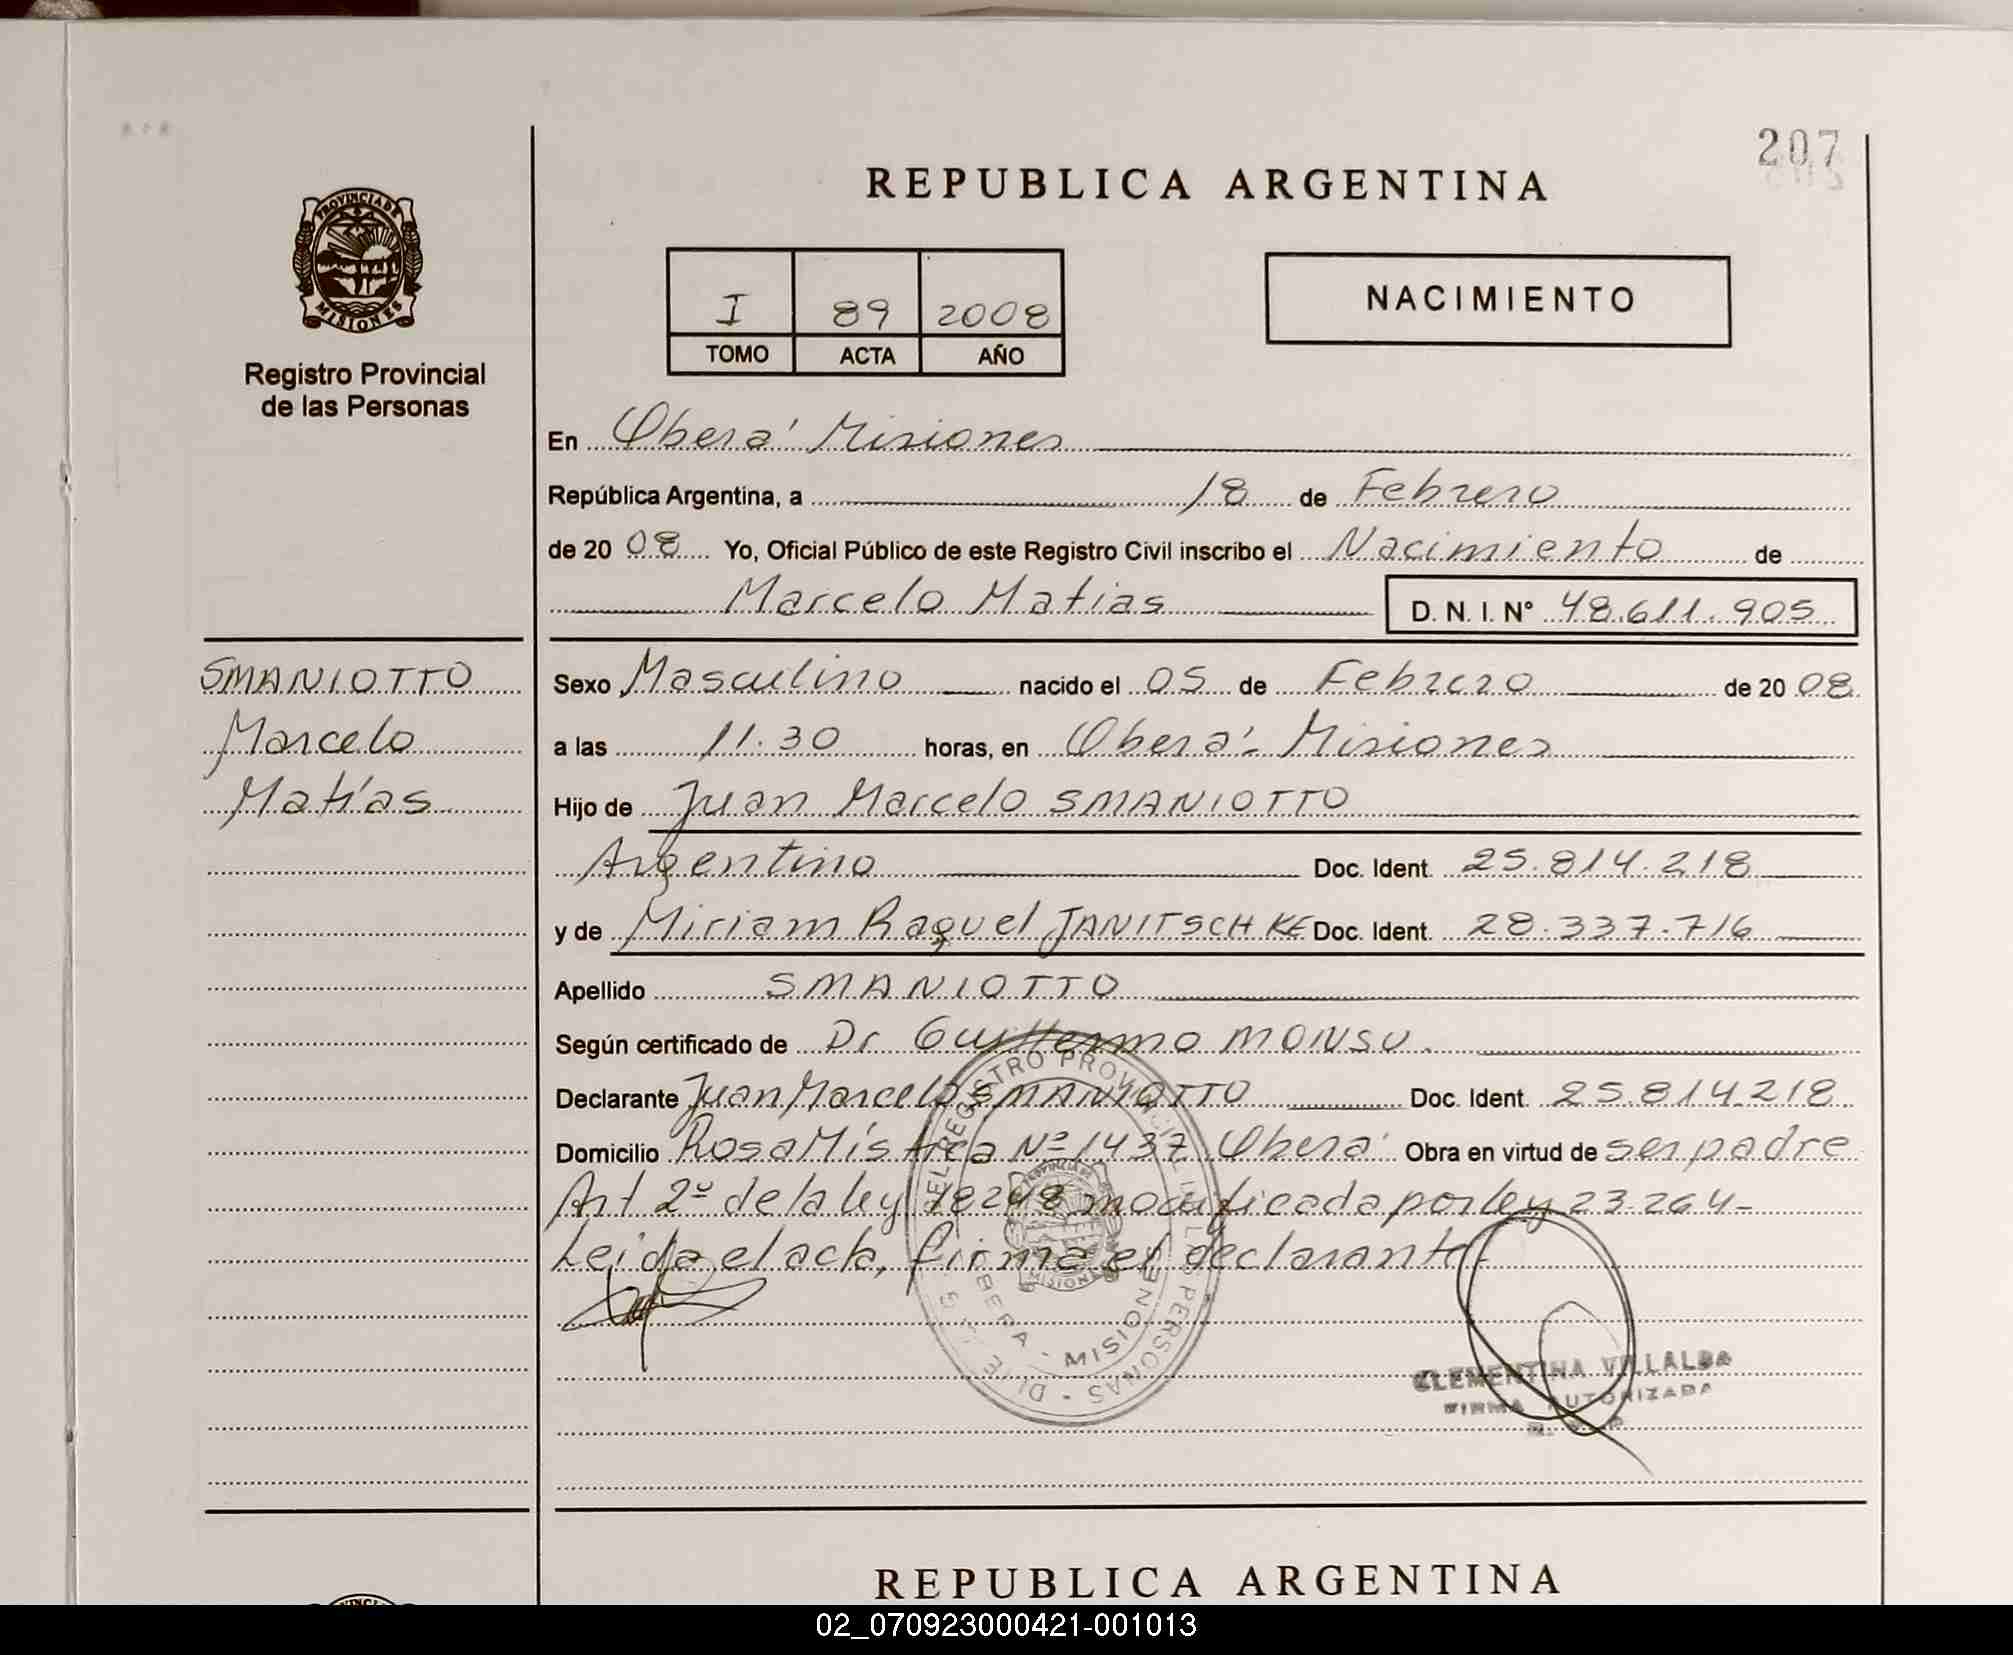 207
PROVINCIA DE
MISIONES
Registro Provincial
de las Personas
REPUBLICA ARGENTINA
I 89 2008
TOMO ACTA AÑO
NACIMIENTO
En Oberá Misiones
República Argentina, a 18 de Febrero
de 20 08 Yo, Oficial Público de este Registro Civil inscribo el Nacimiento de
Marcelo Matias D. N. I. N° 48.611.905
SMANIOTTO
Marcelo
Matías
Sexo Masculino nacido el 05 de Febrero de 20 08
a las 11.30 horas, en Oberá - Misiones
Hijo de Juan Marcelo SMANIOTTO
Argentino Doc. Ident. 25.814.218
y de Miriam Raquel JANITSCHKE Doc. Ident. 28.337.716
Apellido SMANIOTTO
Según certificado de Dr Guillermo MONSU.
Declarante Juan Marcelo SMANIOTTO Doc. Ident. 25.814.218
Domicilio Rosa Mística Nº 1437 Oberá Obra en virtud de ser padre
Art 2º de la ley 18248 modificada por ley 23.264-
Leida el acta, firma el declarante
DEL REGISTRO PROVINCIAL DE LAS PERSONAS
PROVINCIA DE
MISIONES
OBERA - MISIONES
CLEMENTINA VILLALBA
FIRMA AUTORIZADA
REPUBLICA ARGENTINA
02_070923000421-001013